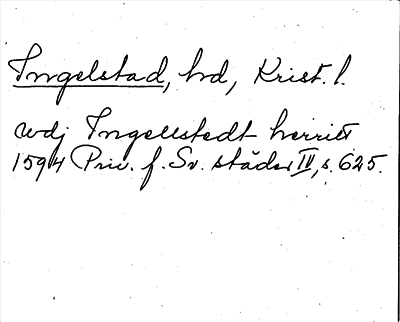 Ingelstad, hd, Krist. l.
wdj Ingellstedt herritt
1594 Priv. f. Sv. städer IV, s. 625.